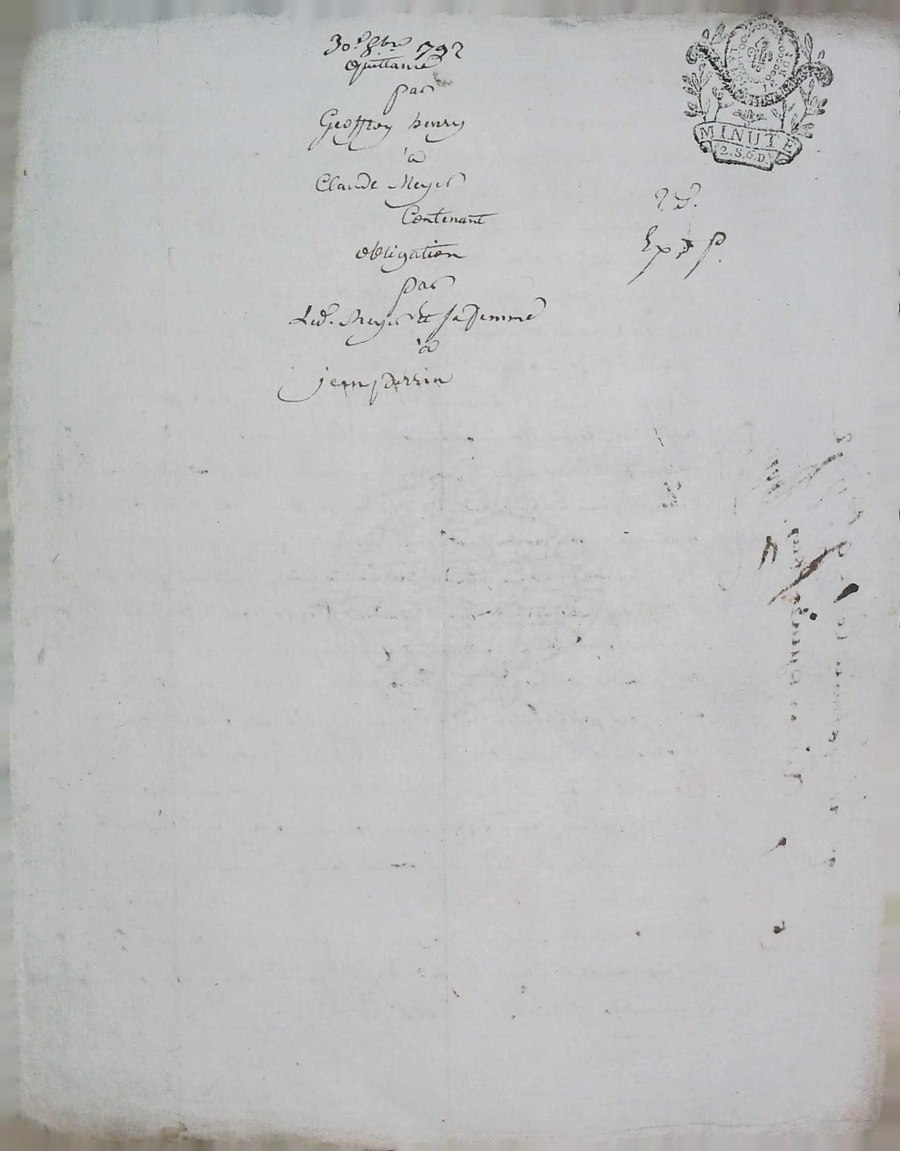 30e 8bre 792
Quittance
par
Geoffroy henry
à
Claude Meyer
Contenant
obligation
par
Led. Meyer Et sa femme
à
jean perrin
MINUTE
2.S.6.D.
2 S.